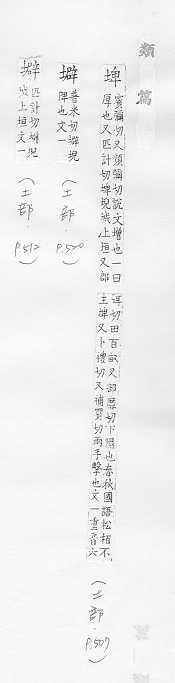 類篇
埤
賓彌切又頻彌切說文增也一曰
厚也又匹計切埤堄城上垣又部
弭切田百畝又部靡切下隰也春秋國語松柏不
主埤又卜禮切又補買切兩手擊也文一重音六
(土部.P.507)
㙄
普米切㙄堄
陴也文一
(土部.P.510)
匹計切埤堄
城上垣文一
(土部.P.512)